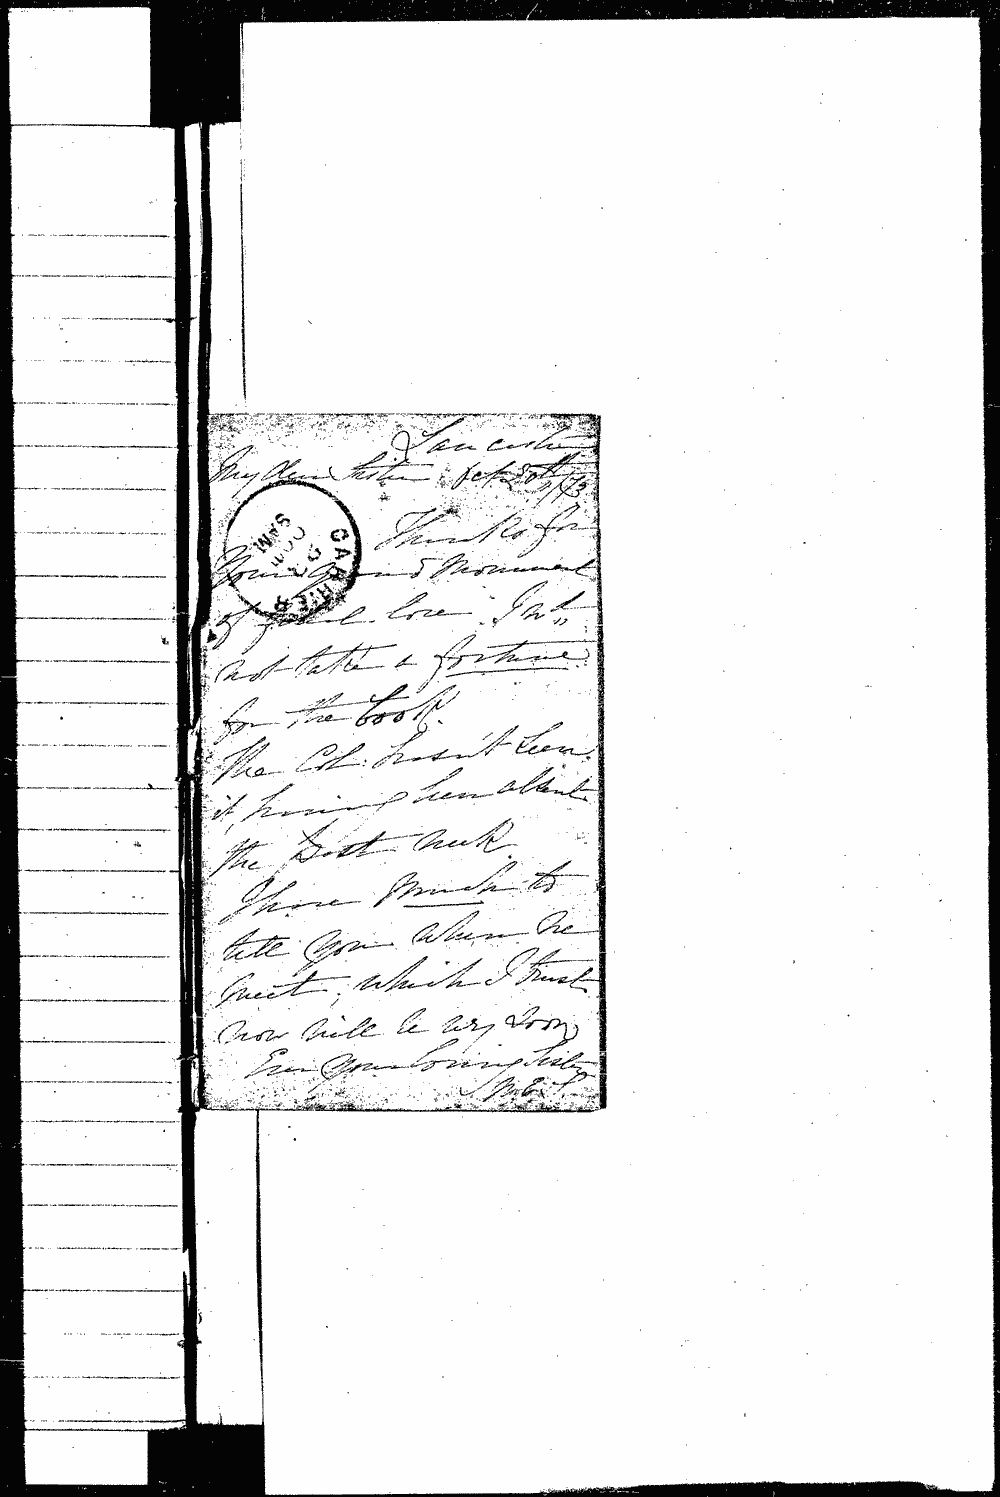 Lancaster
My dear Sister Oct 30th /73
Thanks for
Your grand Monument
of love. I wd
not take a fortune
for the book.
The Col. hasn't seen
it, having been absent
the past week.
I have much to
tell you when we
meet, which I trust
now will be very soon,
Ever your loving Sister
M. E. S.
CARRIER
8 AM